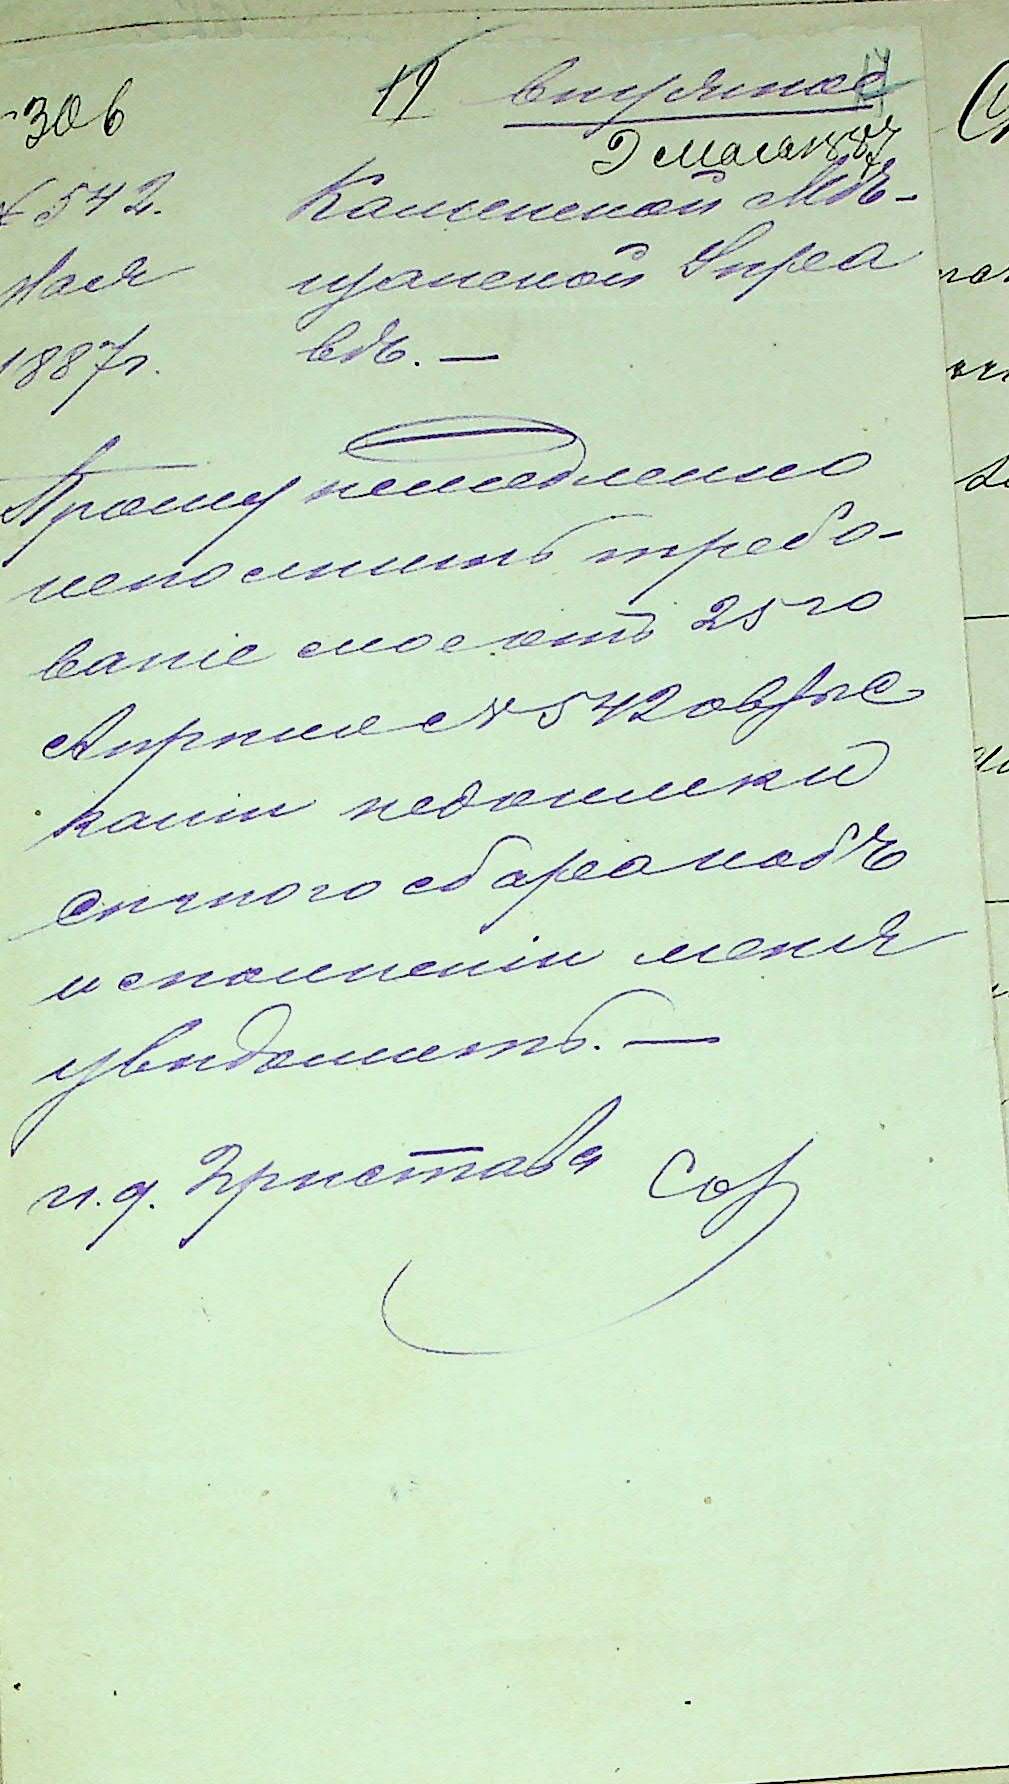 306
12
№ 542.
Мая
1887 г.
9 Мая 1887
Каменской Мѣ-
щанской Упра
вѣ. —
Прошу немедленно
исполнить требо-
ваніе мое отъ 25 го
Апрѣля № 542 о взыс
каніи недоимки
сбора и объ
исполненіи меня
увѣдомить. —
и. д. Пристава